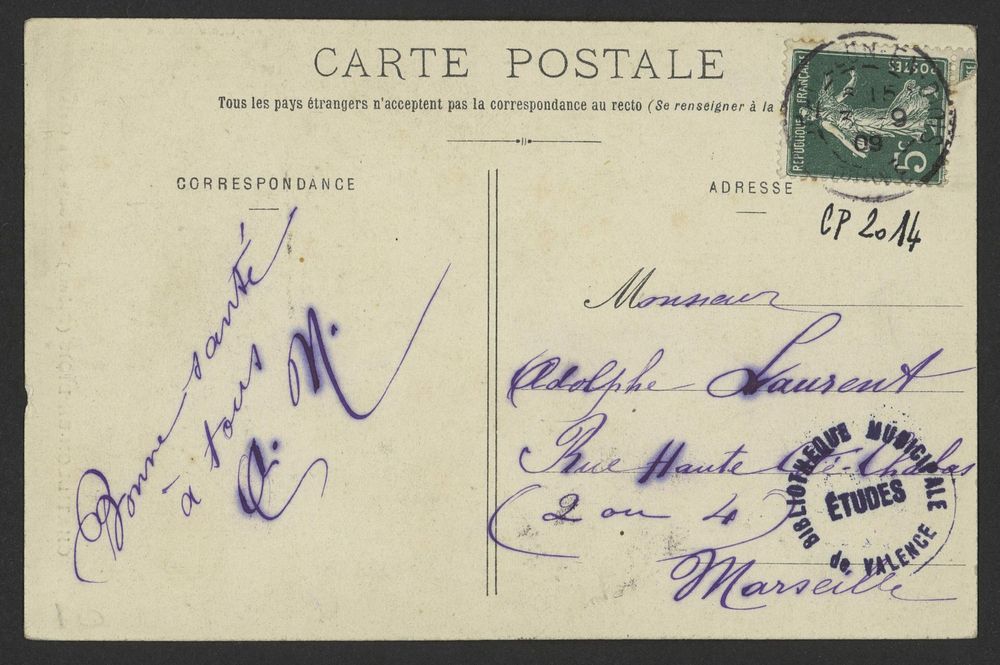 CARTE POSTALE
Tous les pays étrangers n'acceptent pas la correspondance au recto (Se renseigner à la
REPUBLIQUE FRANÇAISE
POSTES
5c
15
9
09
CORRESPONDANCE
ADRESSE
CP 2014
Bonne santé
à tous
A. N.
Monsieur
Adolphe Laurent
Rue Haute
(2 ou 4)
Marseille
BIBLIOTHEQUE MUNICIPALE
ÉTUDES
de VALENCE